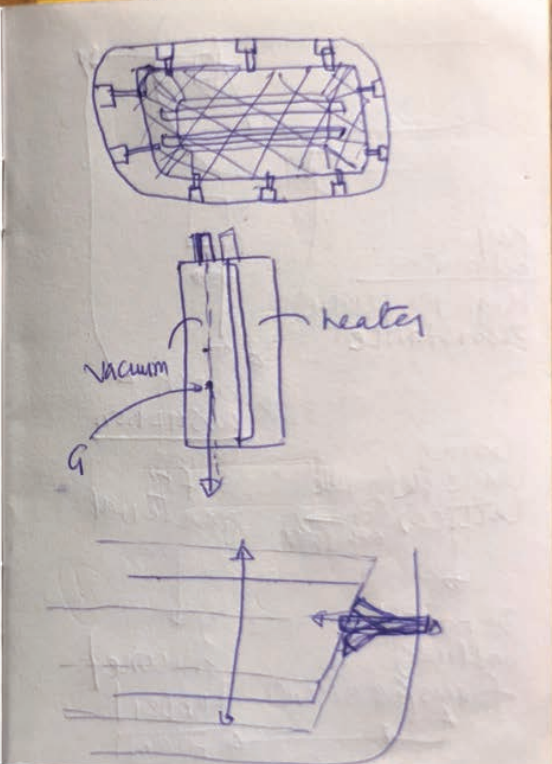 heater
Vacuum
G